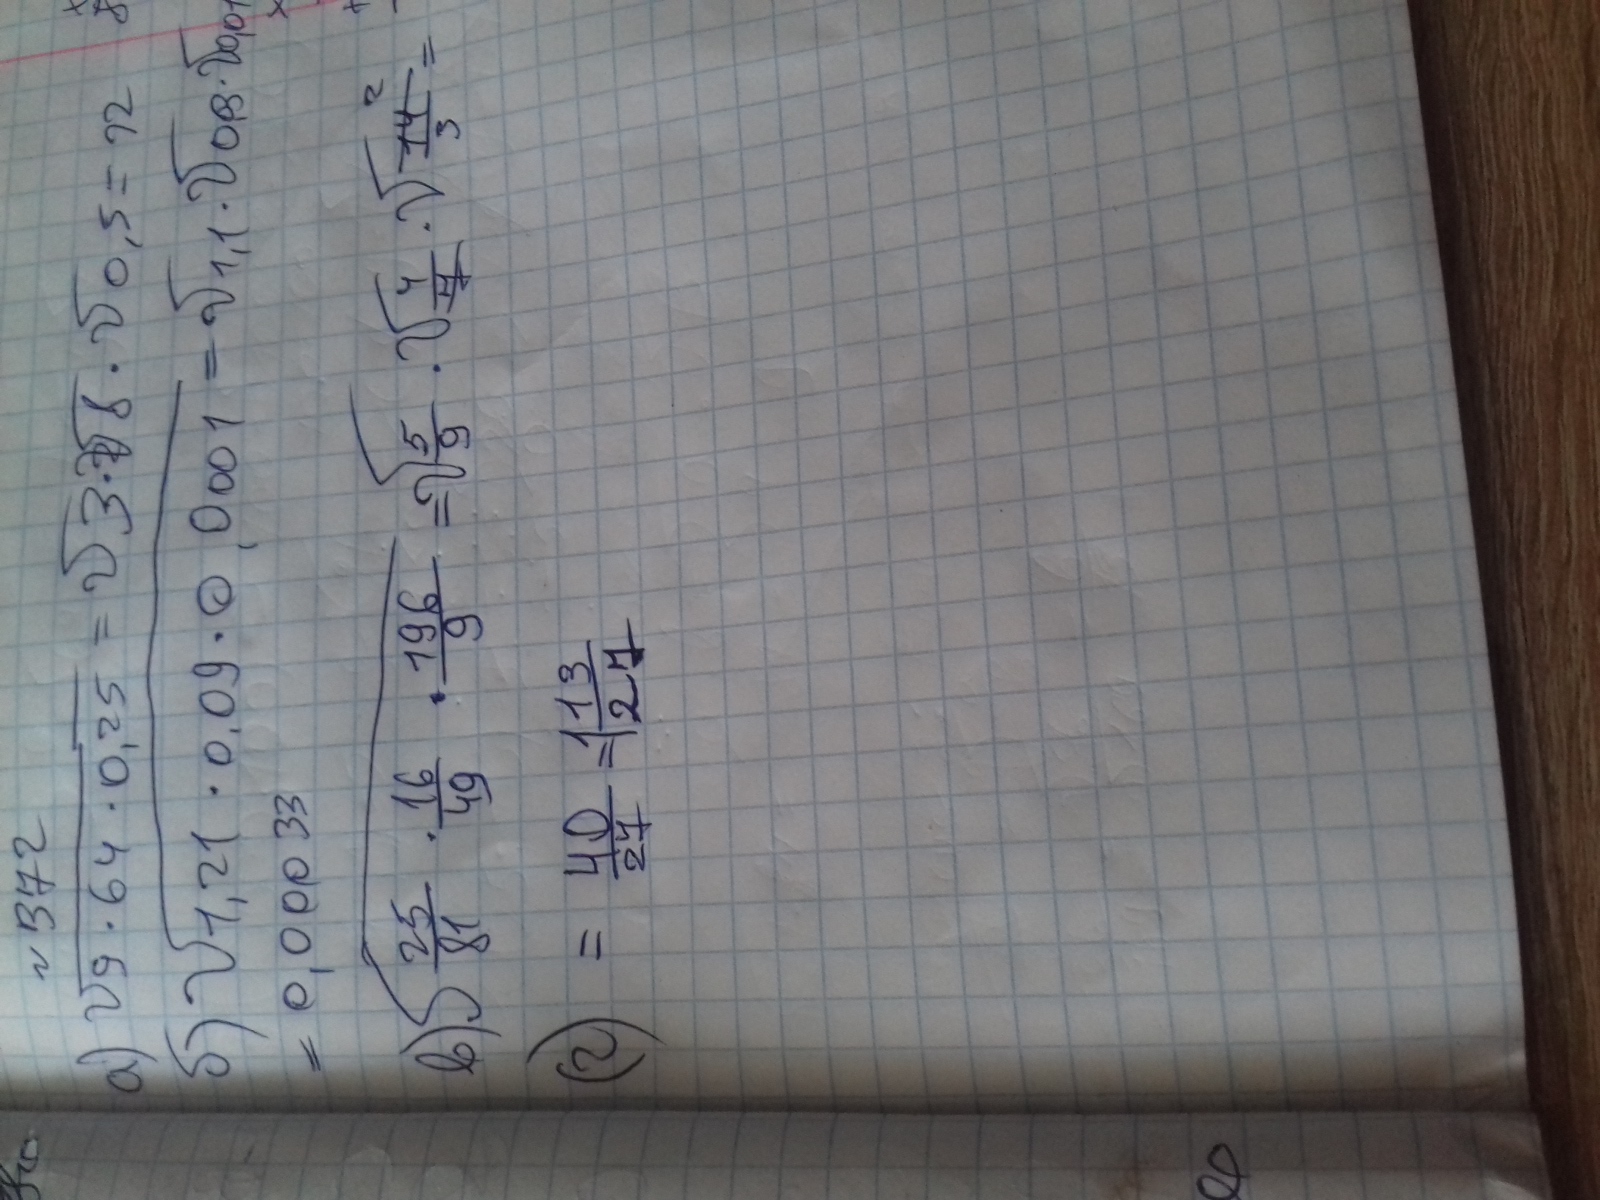 № 372
а) √9 · 64 · 0,25 = √3 · √8 · √0,5 = 12
б) √1,21 · 0,09 · 0,0001 = √1,1 · √0,3 ·
= 0,00033
в) √25/81 · 16/49 · 196/9 = √5/9 · √4/7 · √14/3 2 =
= 40/27 = 1 13/27
(г)